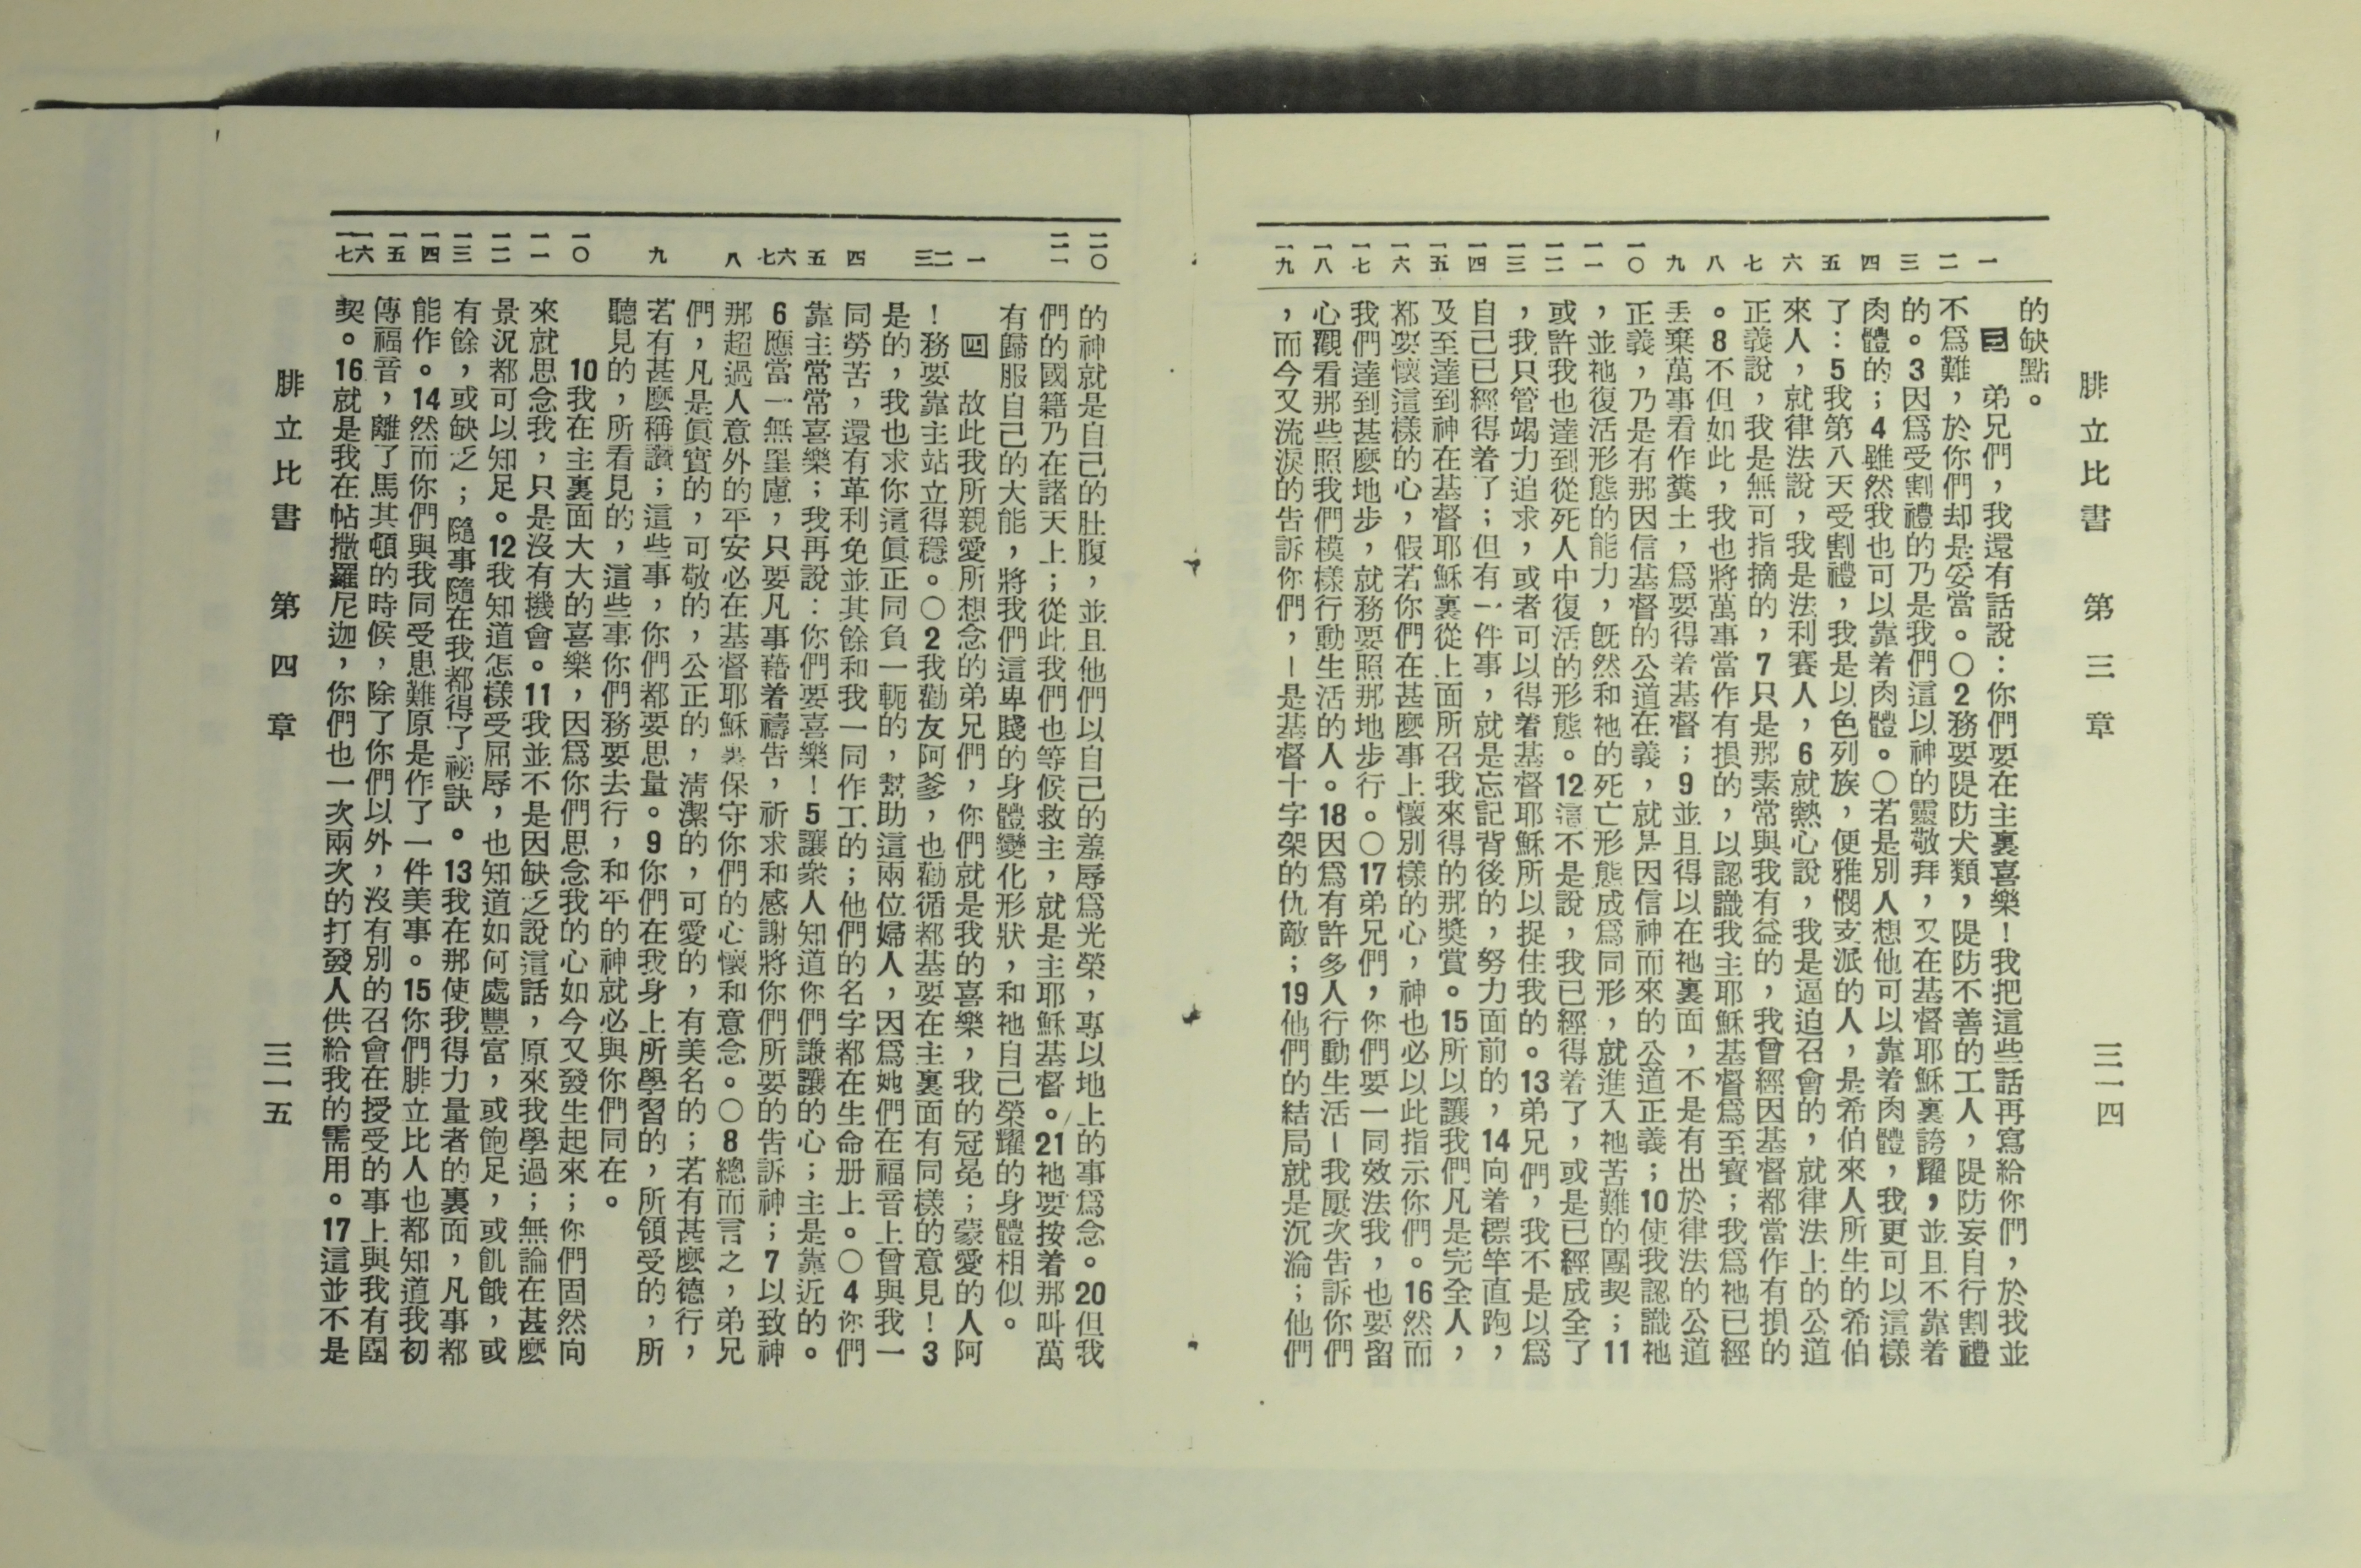 腓立比書　第三章　三一四
一 二 三 四 五 六 七 八 九 一〇 一一 一二 一三 一四 一五 一六 一七 一八 一九
的缺點。
三　弟兄們，我還有話說：你們要在主裏喜樂！我把這些話再寫給你們，於我並
不爲難，於你們却是妥當。〇2務要隄防犬類，隄防不善的工人，隄防妄自行割禮
的。3因爲受割禮的乃是我們這以神的靈敬拜，又在基督耶穌裏誇耀，並且不靠着
肉體的；4雖然我也可以靠着肉體。〇若是別人想他可以靠着肉體，我更可以這樣
了：5我第八天受割禮，我是以色列族，便雅憫支派的人，是希伯來人所生的希伯
來人，就律法說，我是法利賽人，6就熱心說，我是逼迫召會的，就律法上的公道
正義說，我是無可指摘的，7只是那素常與我有益的，我曾經因基督都當作有損的
。8不但如此，我也將萬事當作有損的，以認識我主耶穌基督爲至寶；我爲祂已經
丟棄萬事看作糞土，爲要得着基督；9並且得以在祂裏面，不是有出於律法的公道
正義，乃是有那因信基督的公道在義，就是因信神而來的公道正義；10使我認識祂
，並祂復活形態的能力，旣然和祂的死亡形態成爲同形，就進入祂苦難的團契；11
或許我也達到從死人中復活的形態。12這不是說，我已經得着了，或是已經成全了
，我只管竭力追求，或者可以得着基督耶穌所以捉住我的。13弟兄們，我不是以爲
自己已經得着了；但有一件事，就是忘記背後的，努力面前的，14向着標竿直跑，
及至達到神在基督耶穌裏從上面所召我來得的那獎賞。15所以讓我們凡是完全人，
都要懷這樣的心，假若你們在甚麼事上懷別樣的心，神也必以此指示你們。16然而
我們達到甚麼地步，就務要照那地步行。〇17弟兄們，你們要一同效法我，也要留
心觀看那些照我們模樣行動生活的人。18因爲有許多人行動生活－我屢次告訴你們
，而今又流淚的告訴你們，－是基督十字架的仇敵；19他們的結局就是沉淪；他們
二〇 二一 一 二 三 四 五 六 七 八 九 一〇 一一 一二 一三 一四 一五 一六 一七
的神就是自己的肚腹，並且他們以自己的羞辱爲光榮，專以地上的事爲念。20但我
們的國籍乃在諸天上；從此我們也等候救主，就是主耶穌基督。21祂要按着那叫萬
有歸服自己的大能，將我們這卑賤的身體變化形狀，和祂自己榮耀的身體相似。
四　故此我所親愛所想念的弟兄們，你們就是我的喜樂，我的冠冕；蒙愛的人阿
！務要靠主站立得穩。〇2我勸友阿爹，也勸循都基要在主裏面有同樣的意見！3
是的，我也求你這眞正同負一軛的，幫助這兩位婦人，因爲她們在福音上曾與我一
同勞苦，還有革利免並其餘和我一同作工的；他們的名字都在生命册上。〇4你們
靠主常常喜樂；我再說：你們要喜樂！5讓衆人知道你們謙讓的心；主是靠近的。
6應當一無罣慮，只要凡事藉着禱告，祈求和感謝將你們所要的告訴神；7以致神
那超過人意外的平安必在基督耶穌裏保守你們的心懷和意念。〇8總而言之，弟兄
們，凡是眞實的，可敬的，公正的，淸潔的，可愛的，有美名的；若有甚麼德行，
若有甚麼稱讚；這些事，你們都要思量。9你們在我身上所學習的，所領受的，所
聽見的，所看見的，這些事你們務要去行，和平的神就必與你們同在。
10我在主裏面大大的喜樂，因爲你們思念我的心如今又發生起來；你們固然向
來就思念我，只是沒有機會。11我並不是因缺乏說這話，原來我學過；無論在甚麼
景況都可以知足。12我知道怎樣受屈辱，也知道如何處豐富，或飽足，或飢餓，或
有餘，或缺乏；隨事隨在我都得了祕訣。13我在那使我得力量者的裏面，凡事都
能作。14然而你們與我同受患難原是作了一件美事。15你們腓立比人也都知道我初
傳福音，離了馬其頓的時候，除了你們以外，沒有別的召會在授受的事上與我有團
契。16就是我在帖撒羅尼迦，你們也一次兩次的打發人供給我的需用。17這並不是
腓立比書　第四章　三一五